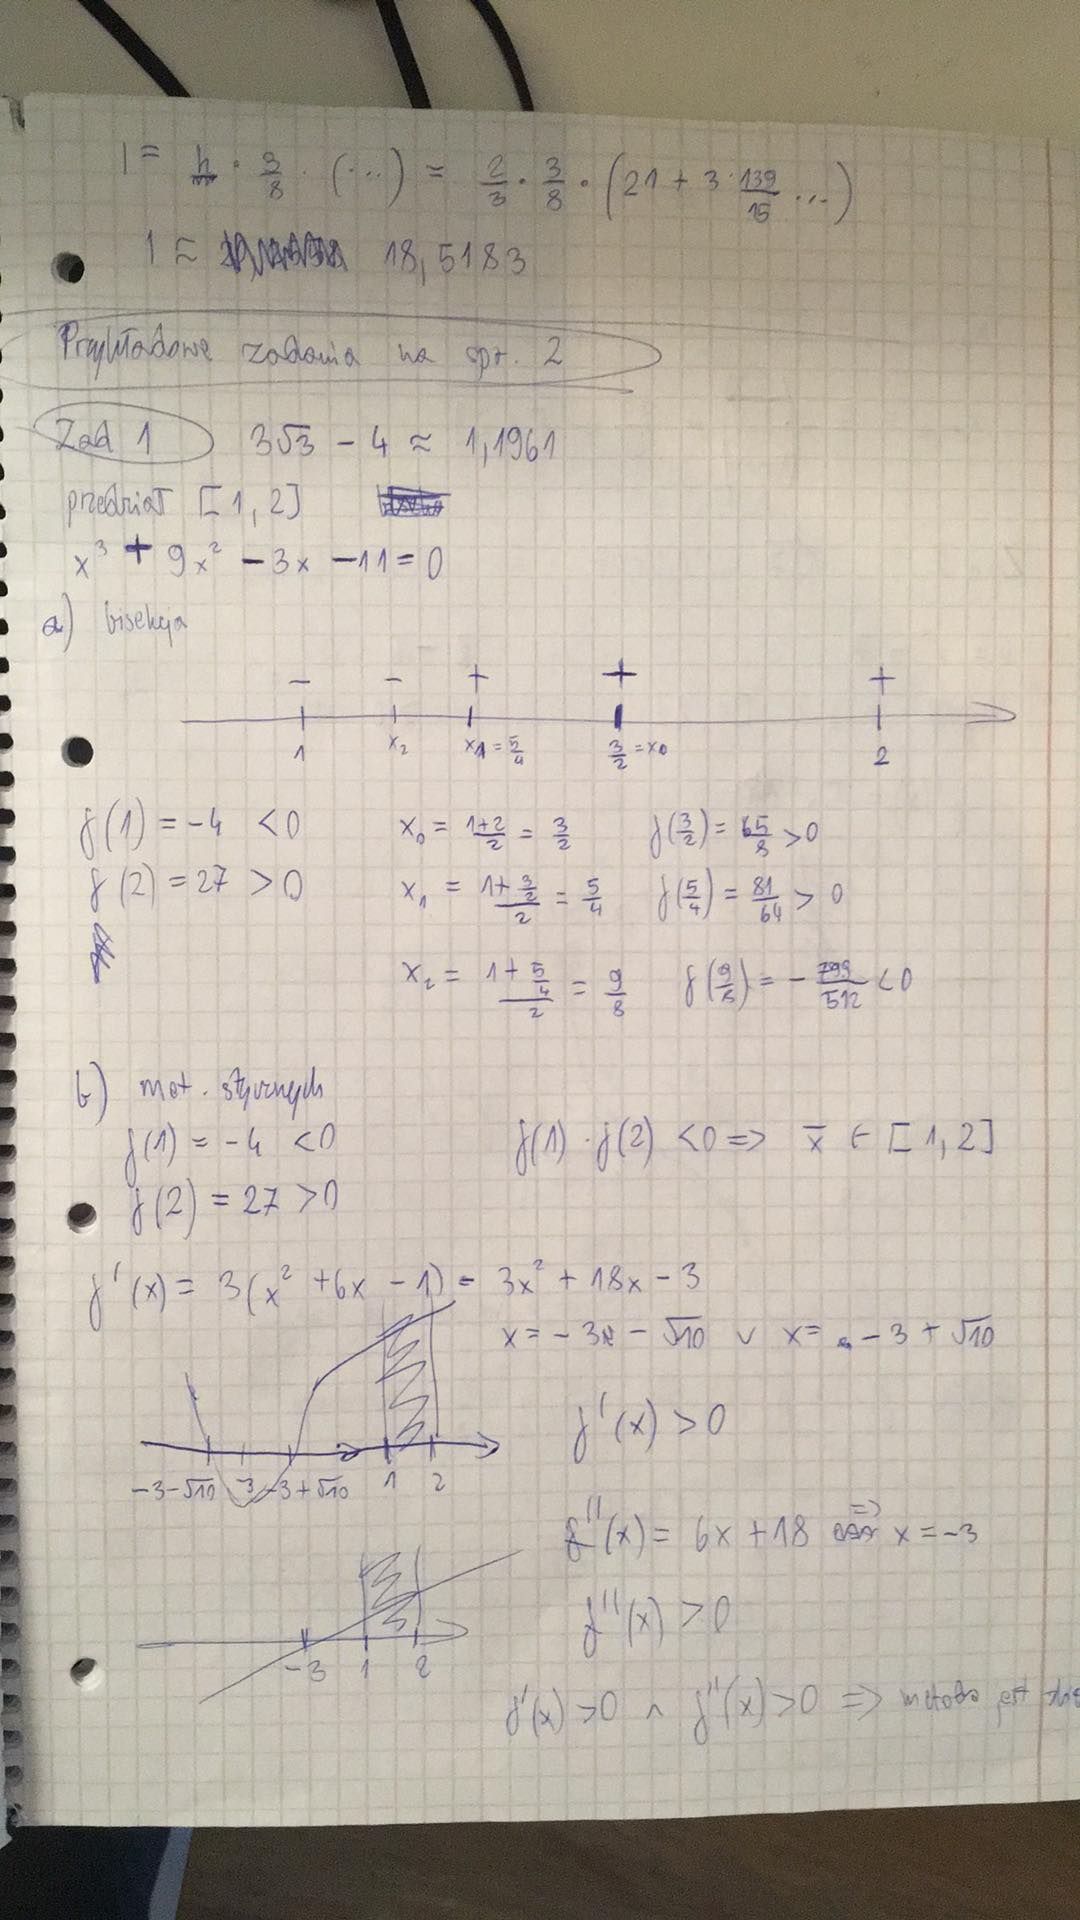 I = h · 3/8 · (...) = 2/3 · 3/8 · (21 + 3 · 139/15 ...)
I ≈ 18,5183
Przykładowe zadania na spr. 2
Zad 1 3√3 - 4 ≈ 1,1961
przedział [1,2]
x³ + 9x² - 3x - 11 = 0
a) bisekcja
- - + + +
1 x₂ x₁ = 5/4 3/2 = x₀ 2
f(1) = -4 < 0 x₀ = (1+2)/2 = 3/2 f(3/2) = 65/8 > 0
f(2) = 27 > 0 x₁ = (1 + 3/2)/2 = 5/4 f(5/4) = 81/64 > 0
x₂ = (1 + 5/4)/2 = 9/8 f(9/8) = - 799/512 < 0
b) met. stycznych
f(1) = -4 < 0 f(1) · f(2) < 0 => x̄ ∈ [1,2]
f(2) = 27 > 0
f'(x) = 3(x² + 6x - 1) = 3x² + 18x - 3
x = -3 - √10 ∨ x = -3 + √10
f'(x) > 0
-3-√10 -3 -3+√10 1 2
f''(x) = 6x + 18 => x = -3
f''(x) > 0
-3 1 2
f'(x) > 0 ∧ f''(x) > 0 => metoda jest